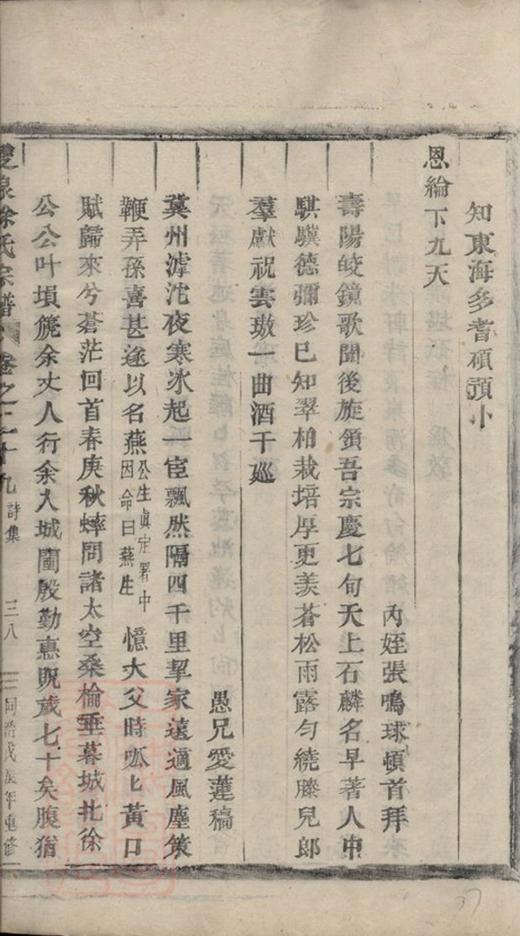 知東海多耆碩預小
恩綸下九天
內姪張鳴球頓首拜
壽陽皎鏡歌聞後旋領吾宗慶七旬天上石麟名早著人中
騏驥德彌珍已知翠柏栽培厚更羨蒼松雨露勻繞膝兒郎
羣獻祝雲璈一曲酒千巡
愚兄愛蓮稿
冀州滹沱夜寒冰起一宦飄然隔四千里挈家遠適風塵策
鞭弄孫喜甚遂以名燕公生眞定署中因命曰燕生憶大父時呱匕黃口
賦歸來兮蒼茫回首春庚秋蟀問諸太空桑榆垂暮城北徐
公公叶塤箎余丈人行余入城闉殷勤惠貺歲七十矣腹猶
雙泉徐氏宗譜 卷之二十九 詩集 三八 同治戊辰年重修
37